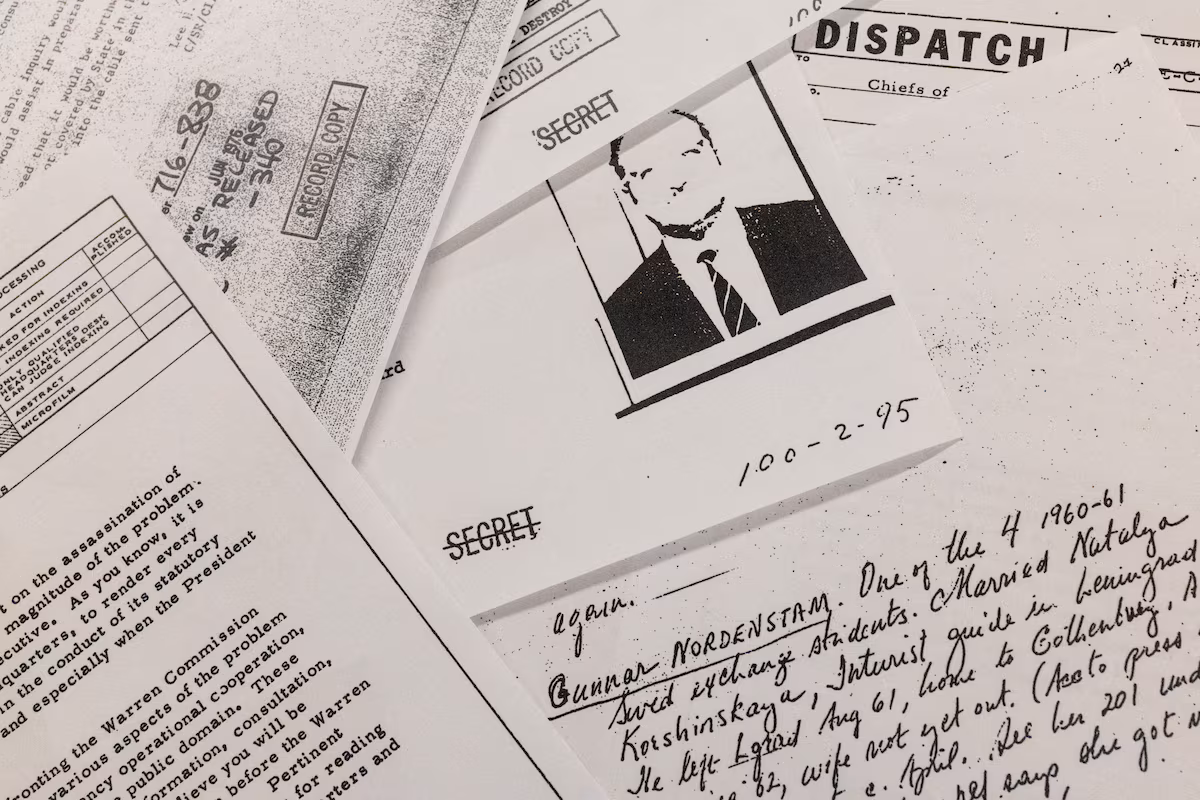 would assist in prepara
into the cable sent t
Lee
C/SR/
716-838
JUN 1976
AS RELEASED
# -340
RECORD COPY
DESTROY
RECORD COPY
SECRET
100
DISPATCH
CLASSI
TO
Chiefs of
27
OCESSING
ACTION
ACCOM-
PLISHED
KED FOR INDEXING
INDEXING REQUIRED
ONLY QUALIFIED DESK
HEADQUARTERS DESK
CAN JUDGE INDEXING
ABSTRACT
MICROFILM
rd
100-2-95
SECRET
t on the assassination of
magnitude of the problem.
ecutive. As you know, it is
quarters, to render every
in the conduct of its statutory
and especially when the President
ronting the Warren Commission
various aspects of the problem
ncy operational cooperation,
public domain. These
formation, consultation,
lieve you will be
before the Warren
Pertinent
for reading
rters and
again.
Gunnar NORDENSTAM. One of the 4 1960-61
Swed exchange students. Married Natalya
Korshinskaya, Inturist guide in Leningrad
He left Lgrad Aug 61, home to Gothenburg, A
62, wife not yet out. (Acc to press
c. April. See her 201 und
says she got